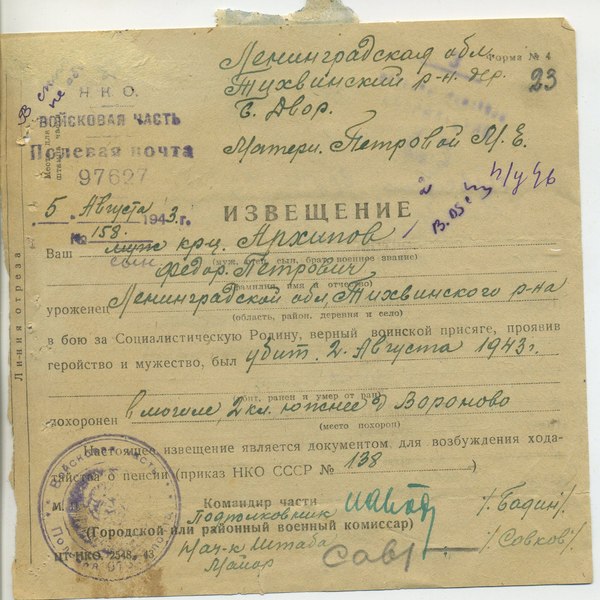 Ленинградская обл.
Форма № 4
Тихвинский р-н. дер.
23
Б. Двор.
Матери. Петровой М. Е.
Н К О
ВОЙСКОВАЯ ЧАСТЬ
Полевая почта
97627
5. Августа 1943. г.
№ 158.
ИЗВЕЩЕНИЕ
Ваш муж кр-ц. Архипов
сын
(муж, отец, сын, брат, военное звание)
Федор. Петрович
(фамилия, имя и отчество)
уроженец Ленинградской обл. Тихвинского р-на
(область, район, деревня и село)
в бою за Социалистическую Родину, верный воинской присяге, проявив
геройство и мужество, был убит. 2. Августа 1943 г.
(убит, ранен и умер от ран)
похоронен в могиле, 2 кл. южнее д Вороново
(место похорон)
Настоящее извещение является документом для возбуждения хода-
тайства о пенсии (приказ НКО СССР № 138)
М. П.
Командир части
Подполковник
/. Бадин/.
(Городской или районный военный комиссар)
Нач-к Штаба
Майор
/Совков/.
НКО. 2548. 43
Линия отреза